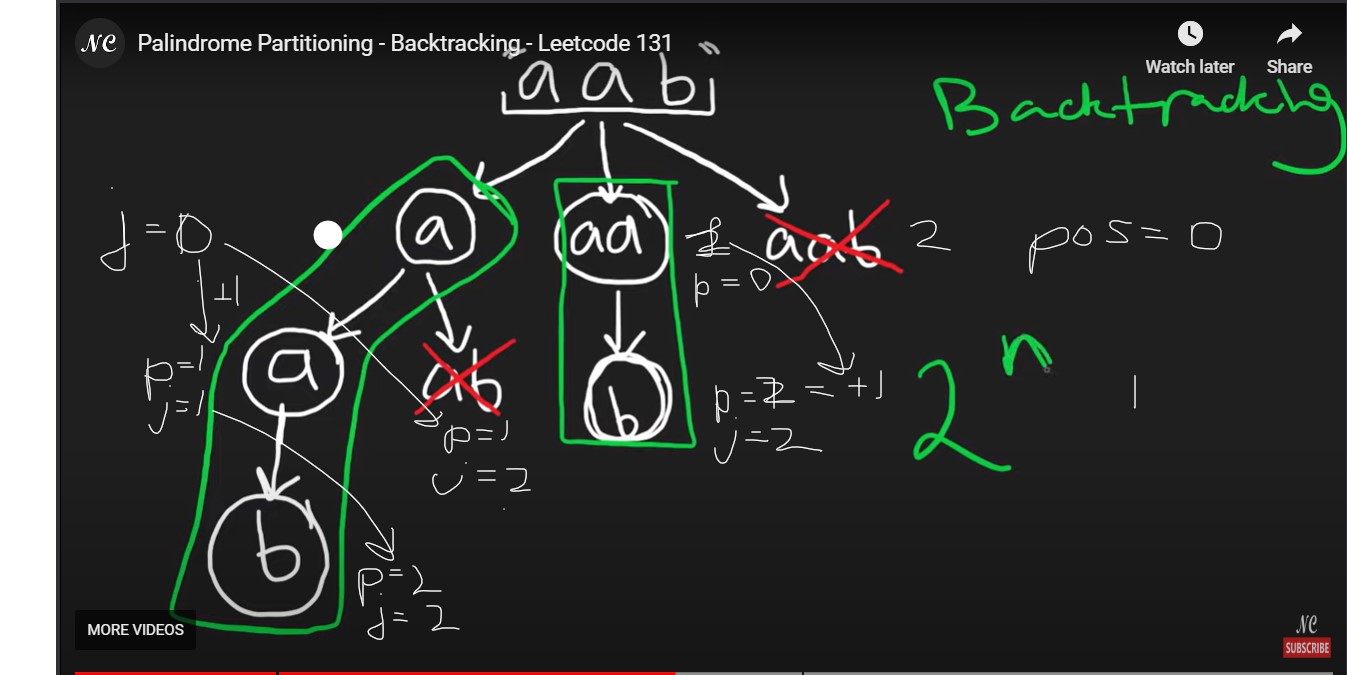 NC Palindrome Partitioning - Backtracking - Leetcode 131
Watch later
Share
"aab"
Backtracking
j = 0
a
aa
aab
2
pos = 0
+1
p = 0
p=1
j=1
a
ab
p=1
j=2
b
p=2 = +1
j=2
2^n
1
b
p=2
j=2
MORE VIDEOS
NC
SUBSCRIBE